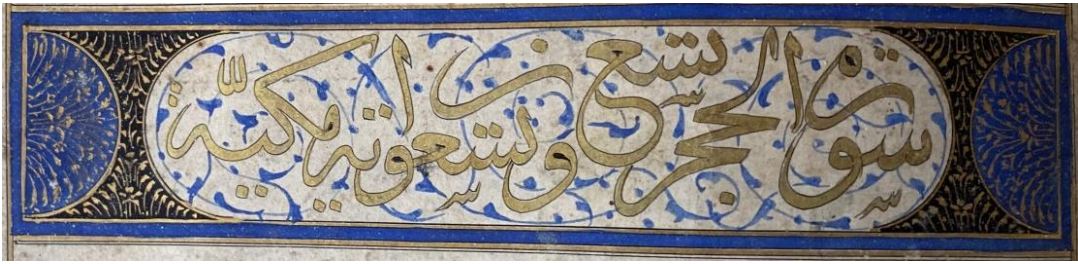 سورة الحجر تسع وتسعون اية مكيّة